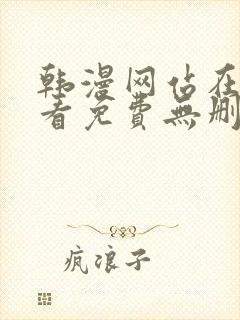 韩漫网站在
看免費無删
疯浪子